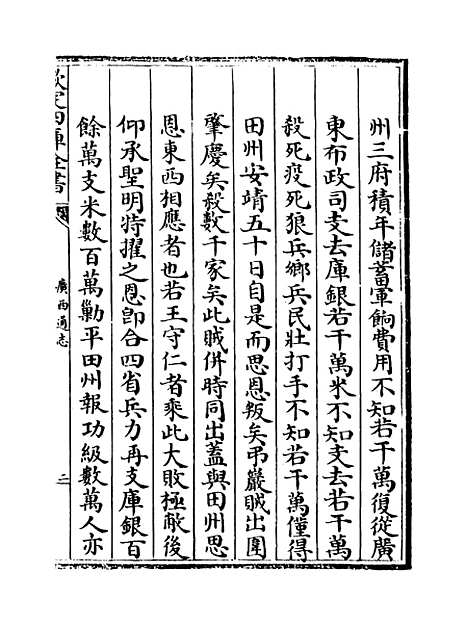 州三府積年儲蓄軍餉費用不知若干萬復從廣
東布政司支去庫銀若干萬米不知支去若干萬
殺死疫死狼兵鄉兵民壯打手不知若干萬僅得
田州安靖五十日自是而思恩叛矣吊巖賊出圍
肇慶矣殺數千家矣此賊併時同出蓋與田州思
恩東西相應者也若王守仁者乘此大敗極敝後
仰承聖明特擢之恩卽合四省兵力再支庫銀百
餘萬支米數百萬勦平田州報功級數萬人亦
欽定四庫全書
廣西通志
二